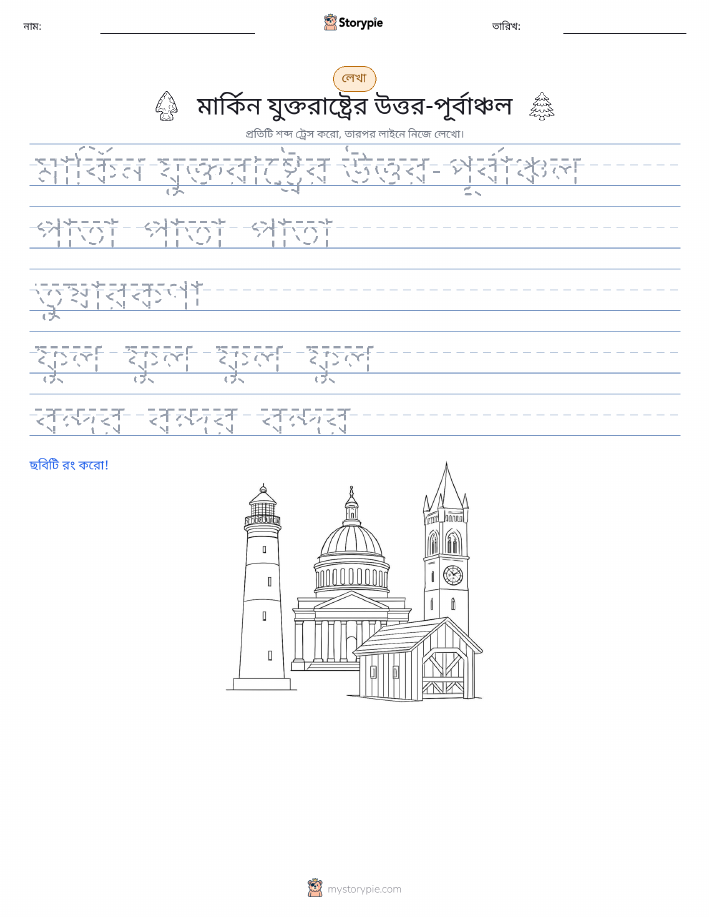 নাম:
Storypie
তারিখ:
লেখা
মার্কিন যুক্তরাষ্ট্রের উত্তর-পূর্বাঞ্চল
প্রতিটি শব্দ ট্রেস করো, তারপর লাইনে নিজে লেখো।
মার্কিন যুক্তরাষ্ট্রের উত্তর-পূর্বাঞ্চল
পাতা পাতা পাতা
তুষারকণা
ফুল ফুল ফুল ফুল
বন্দর বন্দর বন্দর
ছবিটি রং করো!
mystorypie.com